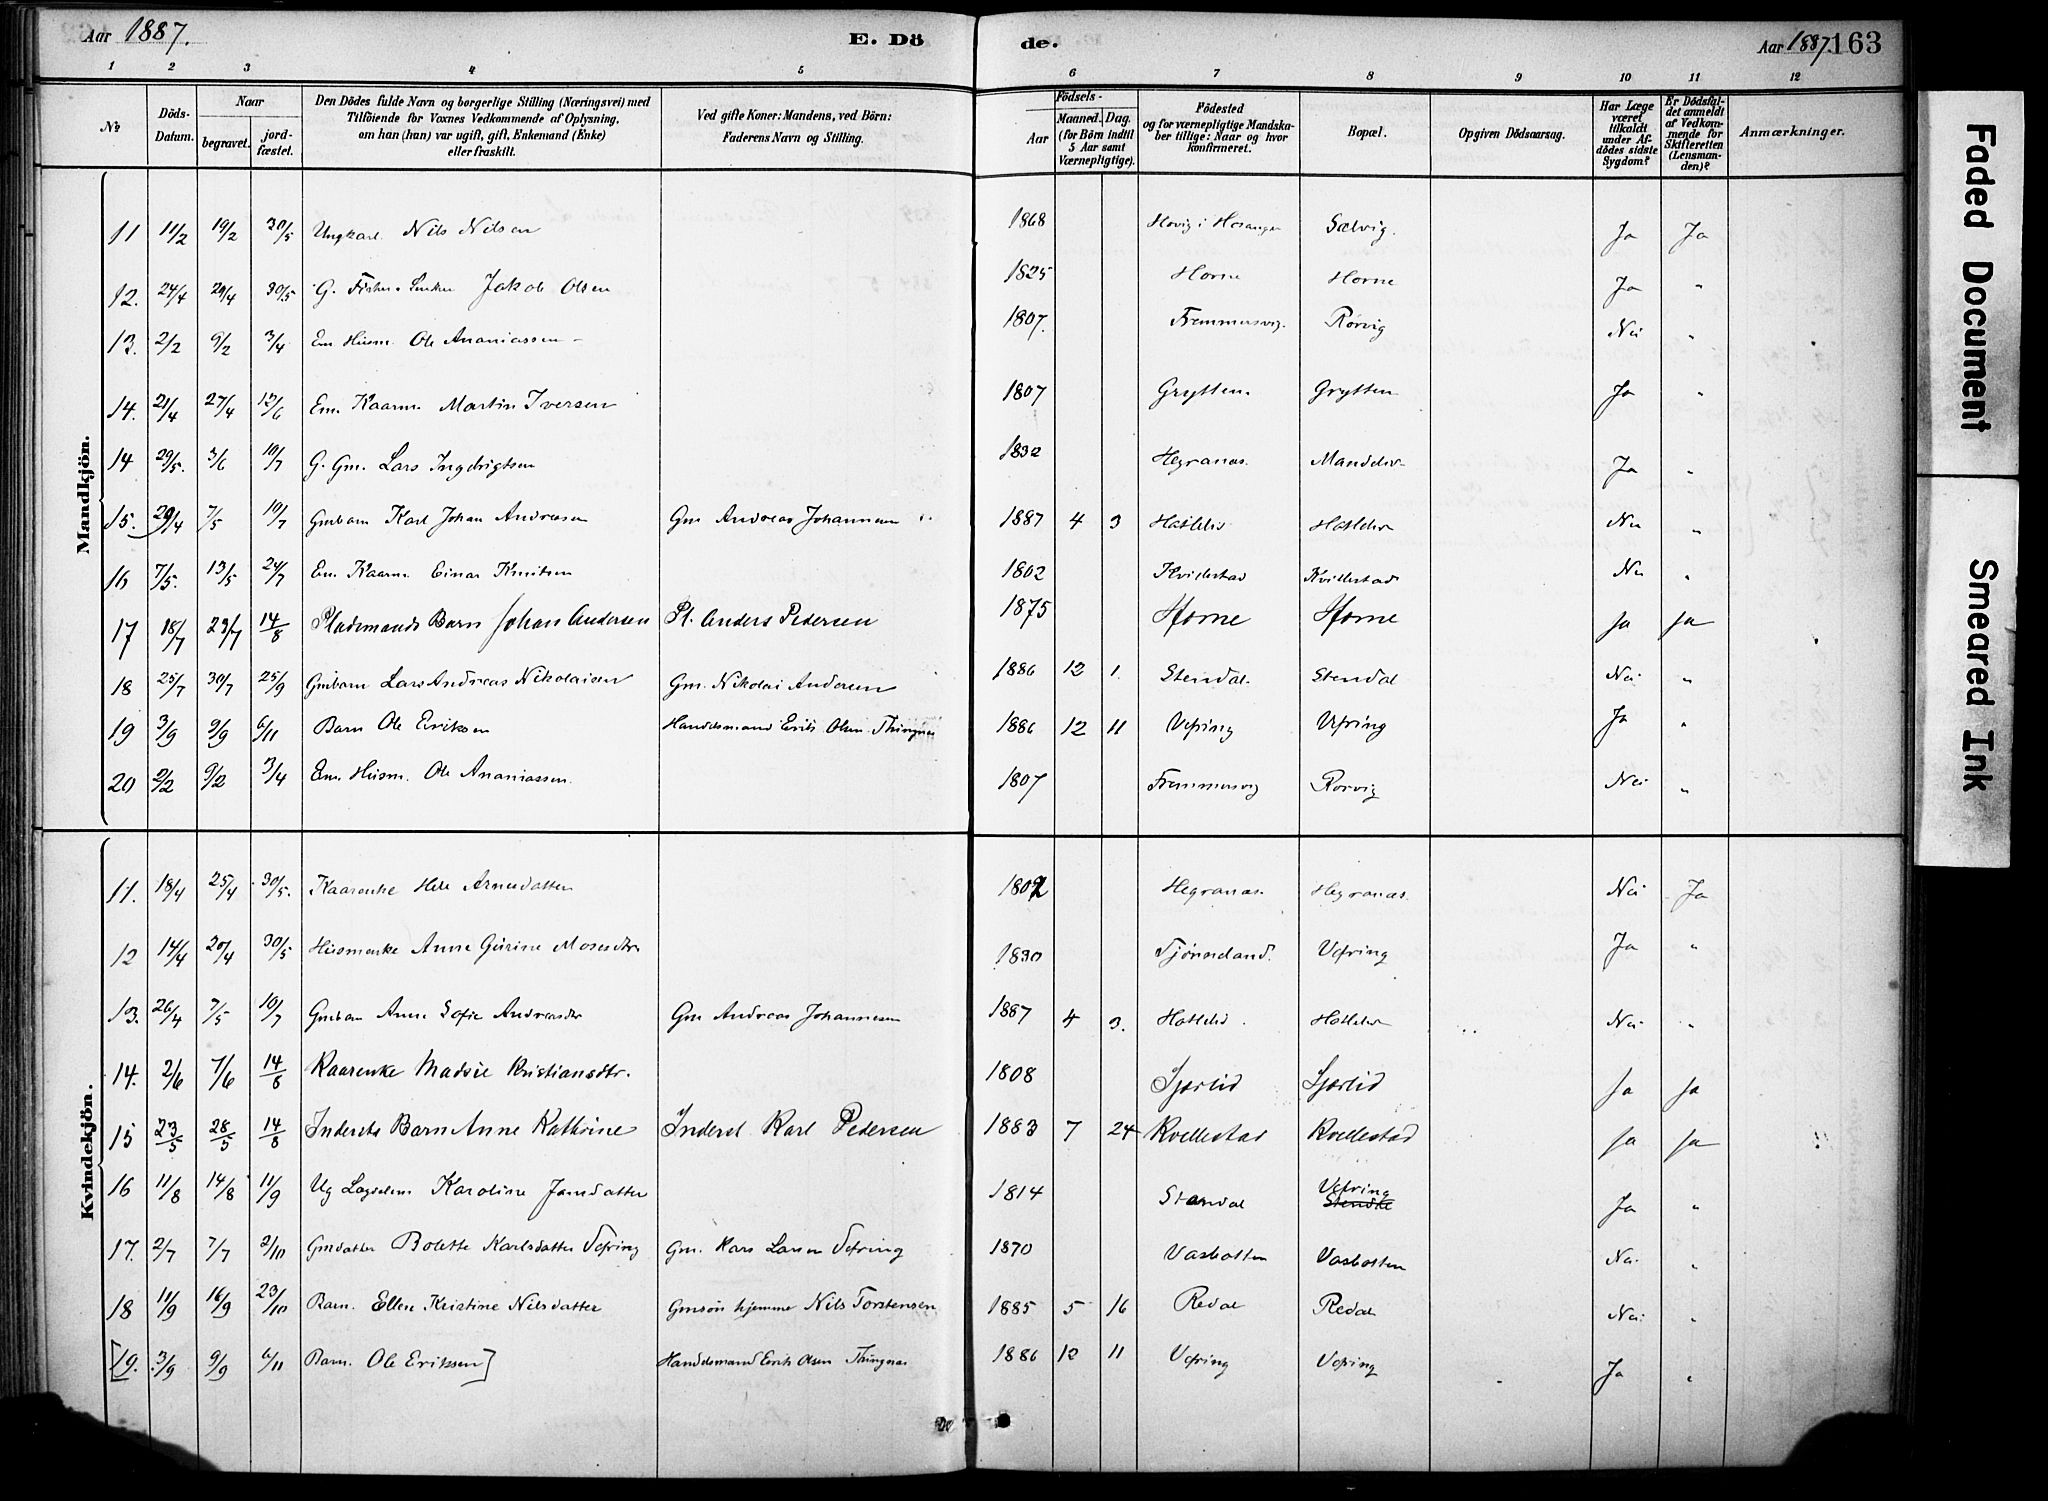 Aar 1887. E. Dö de. Aar 1887. 163
1 2 3 4 5 6 7 8 9 10 11 12
No Döds-Datum. Naar begravet. jordfæstet. Den Dödes fulde Navn og borgerlige Stilling (Næringsvei) med Tilföiende for Voxnes Vedkommende af Oplysning, om han (hun) var ugift, gift, Enkemand (Enke) eller fraskilt. Ved gifte Koner: Mandens, ved Börn: Faderens Navn og Stilling. Födsels- Aar Maaned. Dag. (for Börn indtil 5 Aar samt Værnepligtige). Födested og for værnepligtige Mandskaber tillige: Naar og hvor konfirmeret. Bopæl. Opgiven Dödsaarsag. Har Læge været tilkaldt under Afdödes sidste Sygdom? Er Dödsfaldet anmeldt af Vedkommende for Skifteretten (Lensmanden)? Anmærkninger.
Mandkjön.
11 11/2 19/2 30/5 Ungkarl Nils Nilsen 1868 Hovig i Hosanger Sælvig. Ja Ja
12. 24/4 29/4 30/5 G. Jakob Olsen 1825 Horne Horne Ja "
13. 2/2 9/2 3/4 Em Husm. Ole Ananiassen - 1807. Fremmersvig. Rørvig Nei "
14. 21/4 27/4 12/6 Em. Kaarm. Martin Iversen 1807 Grytten. Grytten Ja "
14 29/5. 3/6 10/7 G. Gm. Lars Ingebrigtsen 1832 Hegranæs. Ja "
15. 29/4 7/5 10/7 Gmbarn Karl Johan Andreasen Gm Andreas Johannesen 1887 4 3 Hatlelid Hatlelid Nei "
16 7/5. 13/5 24/7 Em. Kaarm. Einar Knutsen 1802 Kvidestad Kvillestad Nei "
17 18/7 23/7 14/8 Pladsmands Barn Johan Andersen Pl. Anders Pedersen 1875 Horne Horne Ja Ja
18 25/7 30/7 25/9 Gmbarn Lars Andreas Nikolaisen Gm. Nikolai Andersen 1886 12 1. Stendal. Stendal Nei "
19 3/9 9/9 6/11 Barn Ole Eriksen Handelsmand Erik Olsen Thingnæs 1886 12 11 Vefring Vefring Ja "
20 2/2 9/2 3/4 Em. Husm. Ole Ananiassen. 1807 Fremmersvig Rørvig Nei "
Kvindekjön.
11. 18/4 25/4 30/5. Kaarenke Arnesdatter Hegranæs. Hegranæs. Nei Ja
12 14/4 20/4 30/5 Husmenke Anne Gurine Mosesdtr 1830 Tjønneland. Vefring Ja "
13. 26/4 7/5 10/7 Gmbarn Anne Sofie Andreasdtr Gm Andreas Johannesen 1887 4 3. Hatlelid. Hatlelid Nei "
14. 2/6 7/6 14/8 Kaarenke Madsie Kristiansdtr. 1808 Sjørlid Sjørlid Ja Ja
15 23/5 28/5 14/8 Indersts Barn Anne Kathrine Inderst Karl Pedersen 1883 7 24 Kvellestad Kvellestad Ja Ja
16 11/8 14/8 11/9 Ug Karoline Jansdatter 1814 Stendal Vefring Ja "
17. 2/7 7/7 2/10 Gmdatter Bolette Karlsdatter Vefring Gm. Lassen Vefring 1870 Vasbotten Vasbotten Nei. "
18 11/9 16/9 23/10 Barn. Ellen Kristine Nilsdatter Gmsøn hjemme Nils Torstensen 1885 5 16 Redal Redal Nei "
[19. 3/9 9/9 6/11 Barn. Ole Eriksen] Handelsmand Erik Olsen Thingnæs 1886 12 11 Vefring Vefring Ja "
Faded Document
Smeared Ink